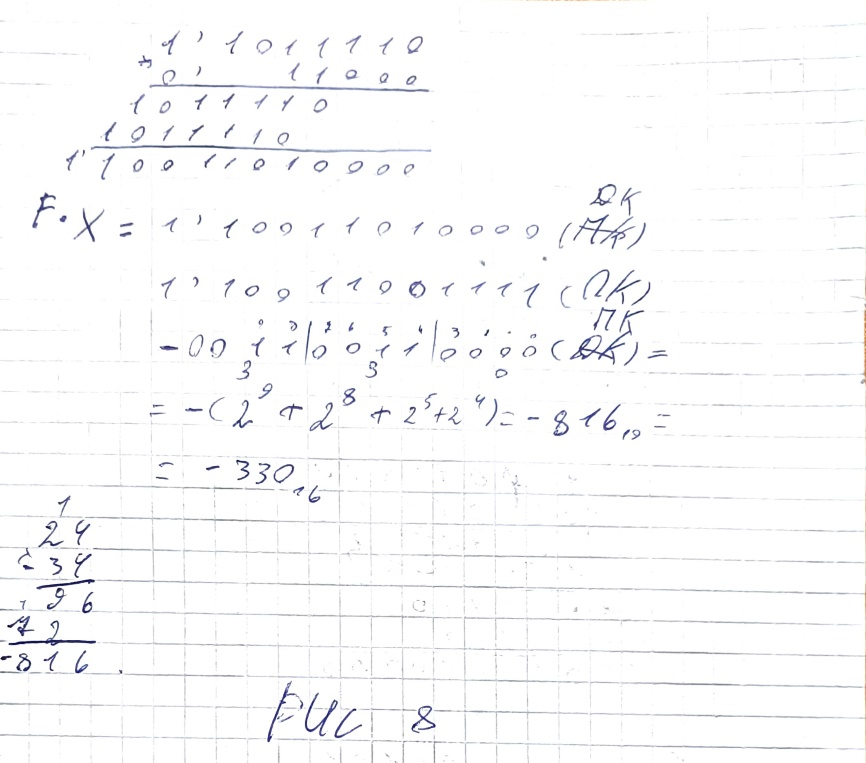 1' 1011110
* 0' 11000
1011110
1011110
1' 10011010000
ДК
F·X = 1' 10011010000 (ПК)
1' 10011001111 (ОК)
ПК
9 8 7 6 5 4 3 1 0 0
-0011|0011|0000 (ДК) =
3 3 0
= -(2⁹ + 2⁸ + 2⁵ + 2⁴) = -816₁₀ =
= -330₁₆
1
24
-34
96
72
-816
РИС 8